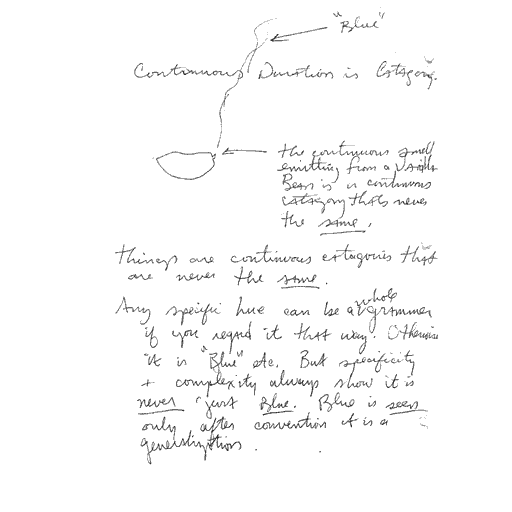 "Blue"
Continuous Duration is Catagory.
the continuous smell
emitting from a Vanilla
Bean is a continuous
catagory thats never
the same.
Things are continuous catagories that
are never the same.
Any specific hue can be a whole grammer
if you regard it that way. Otherwise
it is "Blue" etc. But specificity
+ complexity always show it is
never "just Blue. Blue is seen
only after convention it is a
generalization.